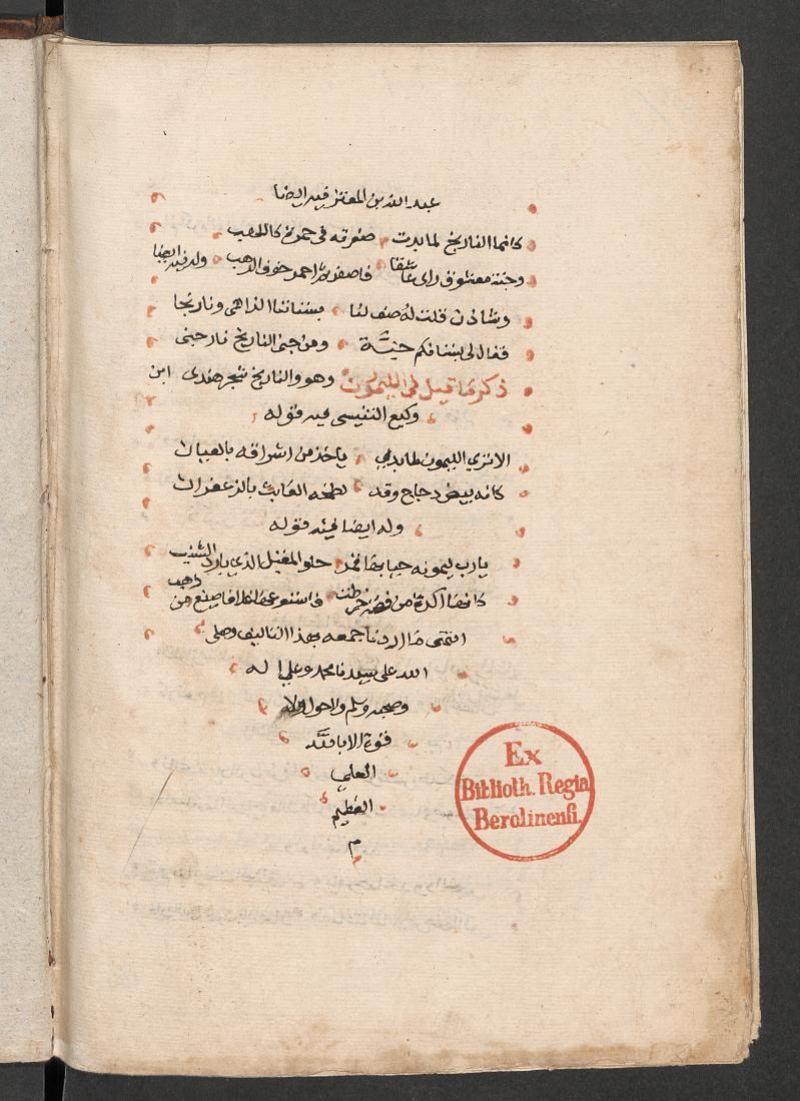 عبد الله بن المعتز فيه ايضا
كانما النارنج لما بدت صفرته في حمرة كاللهيب
وجنة معشوق راى عاشقا فاصفر ثم احمر خوف الرقيب وله فيه ايضا
وشادن قلت له صف لنا بستاننا الزاهي ونارنجا
فقال لي بستانكم جنة ومن جنى النارنج نارا جنى
ذكر ما قيل في الليمون وهو والنارنج شجر هندى ابن
وكيع التنيسى فيه قوله
الا ترى الليمون لما بدى ياخذ من اشراقه بالعيان
كانه بيض دجاج وقد لطخه العابث بالزعفران
وله ايضا فيه قوله
يارب ليمونة حيا بها قمر حلو المقبل المي بارد الشنب
كانها اكرة من فضة خرطت فاستودعوها غلافا صيغ من ذهب
انتهى ما اردنا جمعه بهذا التاليف وصلى
الله على سيدنا محمد وعلى اله
وصحبه وسلم ولا حول ولا
قوة الا بالله
العلي
العظيم
م
Ex
Biblioth. Regia
Berolinensi.